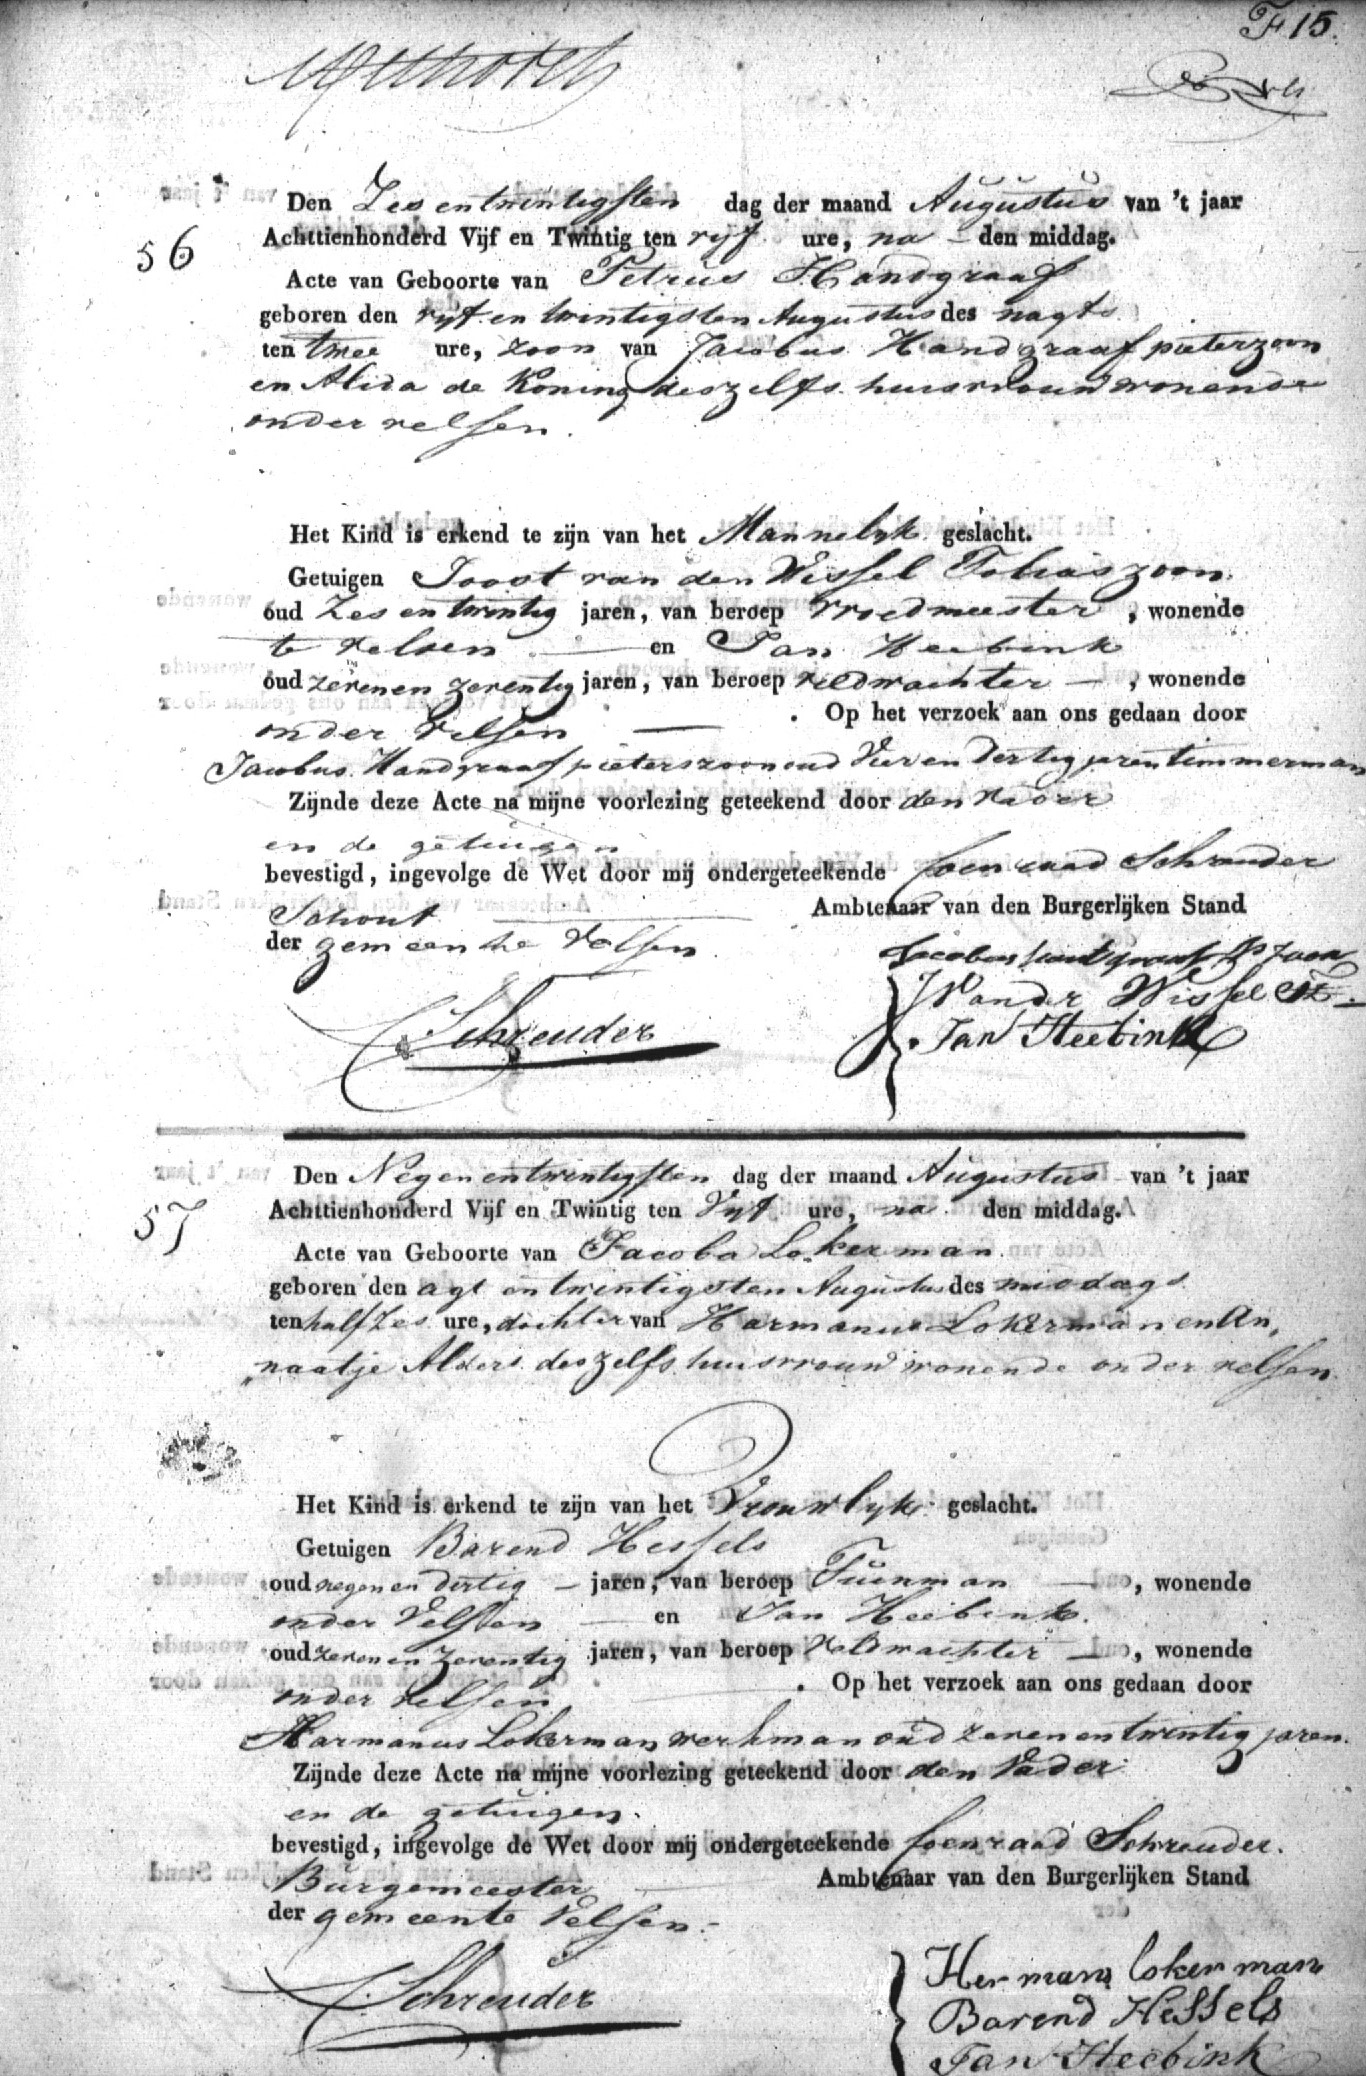 F 15.
56
Den Zes en twintigsten dag der maand Augustus van 't jaar
Achttienhonderd Vijf en Twintig ten vyf ure, na den middag.
Acte van Geboorte van Petrus Handgraaf
geboren den vyf en twintigsten Augustus des nagts
ten twee ure, zoon van Jacobus Handgraaf pieterzoon
en Alida de Koning deszelfs huisvrouw wonende
onder velsen.
Het Kind is erkend te zijn van het Mannelyk geslacht.
Getuigen Joost van den Wissel Tobiaszoon.
oud Zes en twintig jaren, van beroep vroedmeester, wonende
te velsen — en Jan Heebink
oud zeven en zeventig jaren, van beroep veldwachter —, wonende
onder Velsen — . Op het verzoek aan ons gedaan door
Jacobus Handgraaf pieterszoon oud Vier en dertig jaren timmerman
Zijnde deze Acte na mijne voorlezing geteekend door den vader
en de getuigen
bevestigd, ingevolge de Wet door mij ondergeteekende Coenraad Schreuder
Schout Ambtenaar van den Burgerlijken Stand
der gemeente Velsen
Jacobus handgraaf Pzoon
J Vander Wissel Tz.
Schreuder
Jan Heebink
57
Den Negenentwintigsten dag der maand Augustus van 't jaar
Achttienhonderd Vijf en Twintig ten Vyf ure, na den middag.
Acte van Geboorte van Jacoba Lokerman.
geboren den agt en twintigsten Augustus des middags
ten half Zes ure, dochter van Harmanus Lokerman en An„
„naatje Alders deszelfs huisvrouw wonende onder velsen.
Het Kind is erkend te zijn van het Vrouwlyke geslacht.
Getuigen Barend Hessels
oud negen en dertig — jaren, van beroep Tuinman —, wonende
onder Velsen — en Jan Heebink.
oud zeven en zeventig jaren, van beroep Veldwachter —, wonende
onder velsen . Op het verzoek aan ons gedaan door
Harmanus Lokerman werkman oud zeven en twintig jaren.
Zijnde deze Acte na mijne voorlezing geteekend door den Vader
en de getuigen.
bevestigd, ingevolge de Wet door mij ondergeteekende Coenraad Schreuder.
Burgemeester Ambtenaar van den Burgerlijken Stand
der gemeente Velsen.
Hermans lokerman
Schreuder
Barend Hessels
Jan Heebink